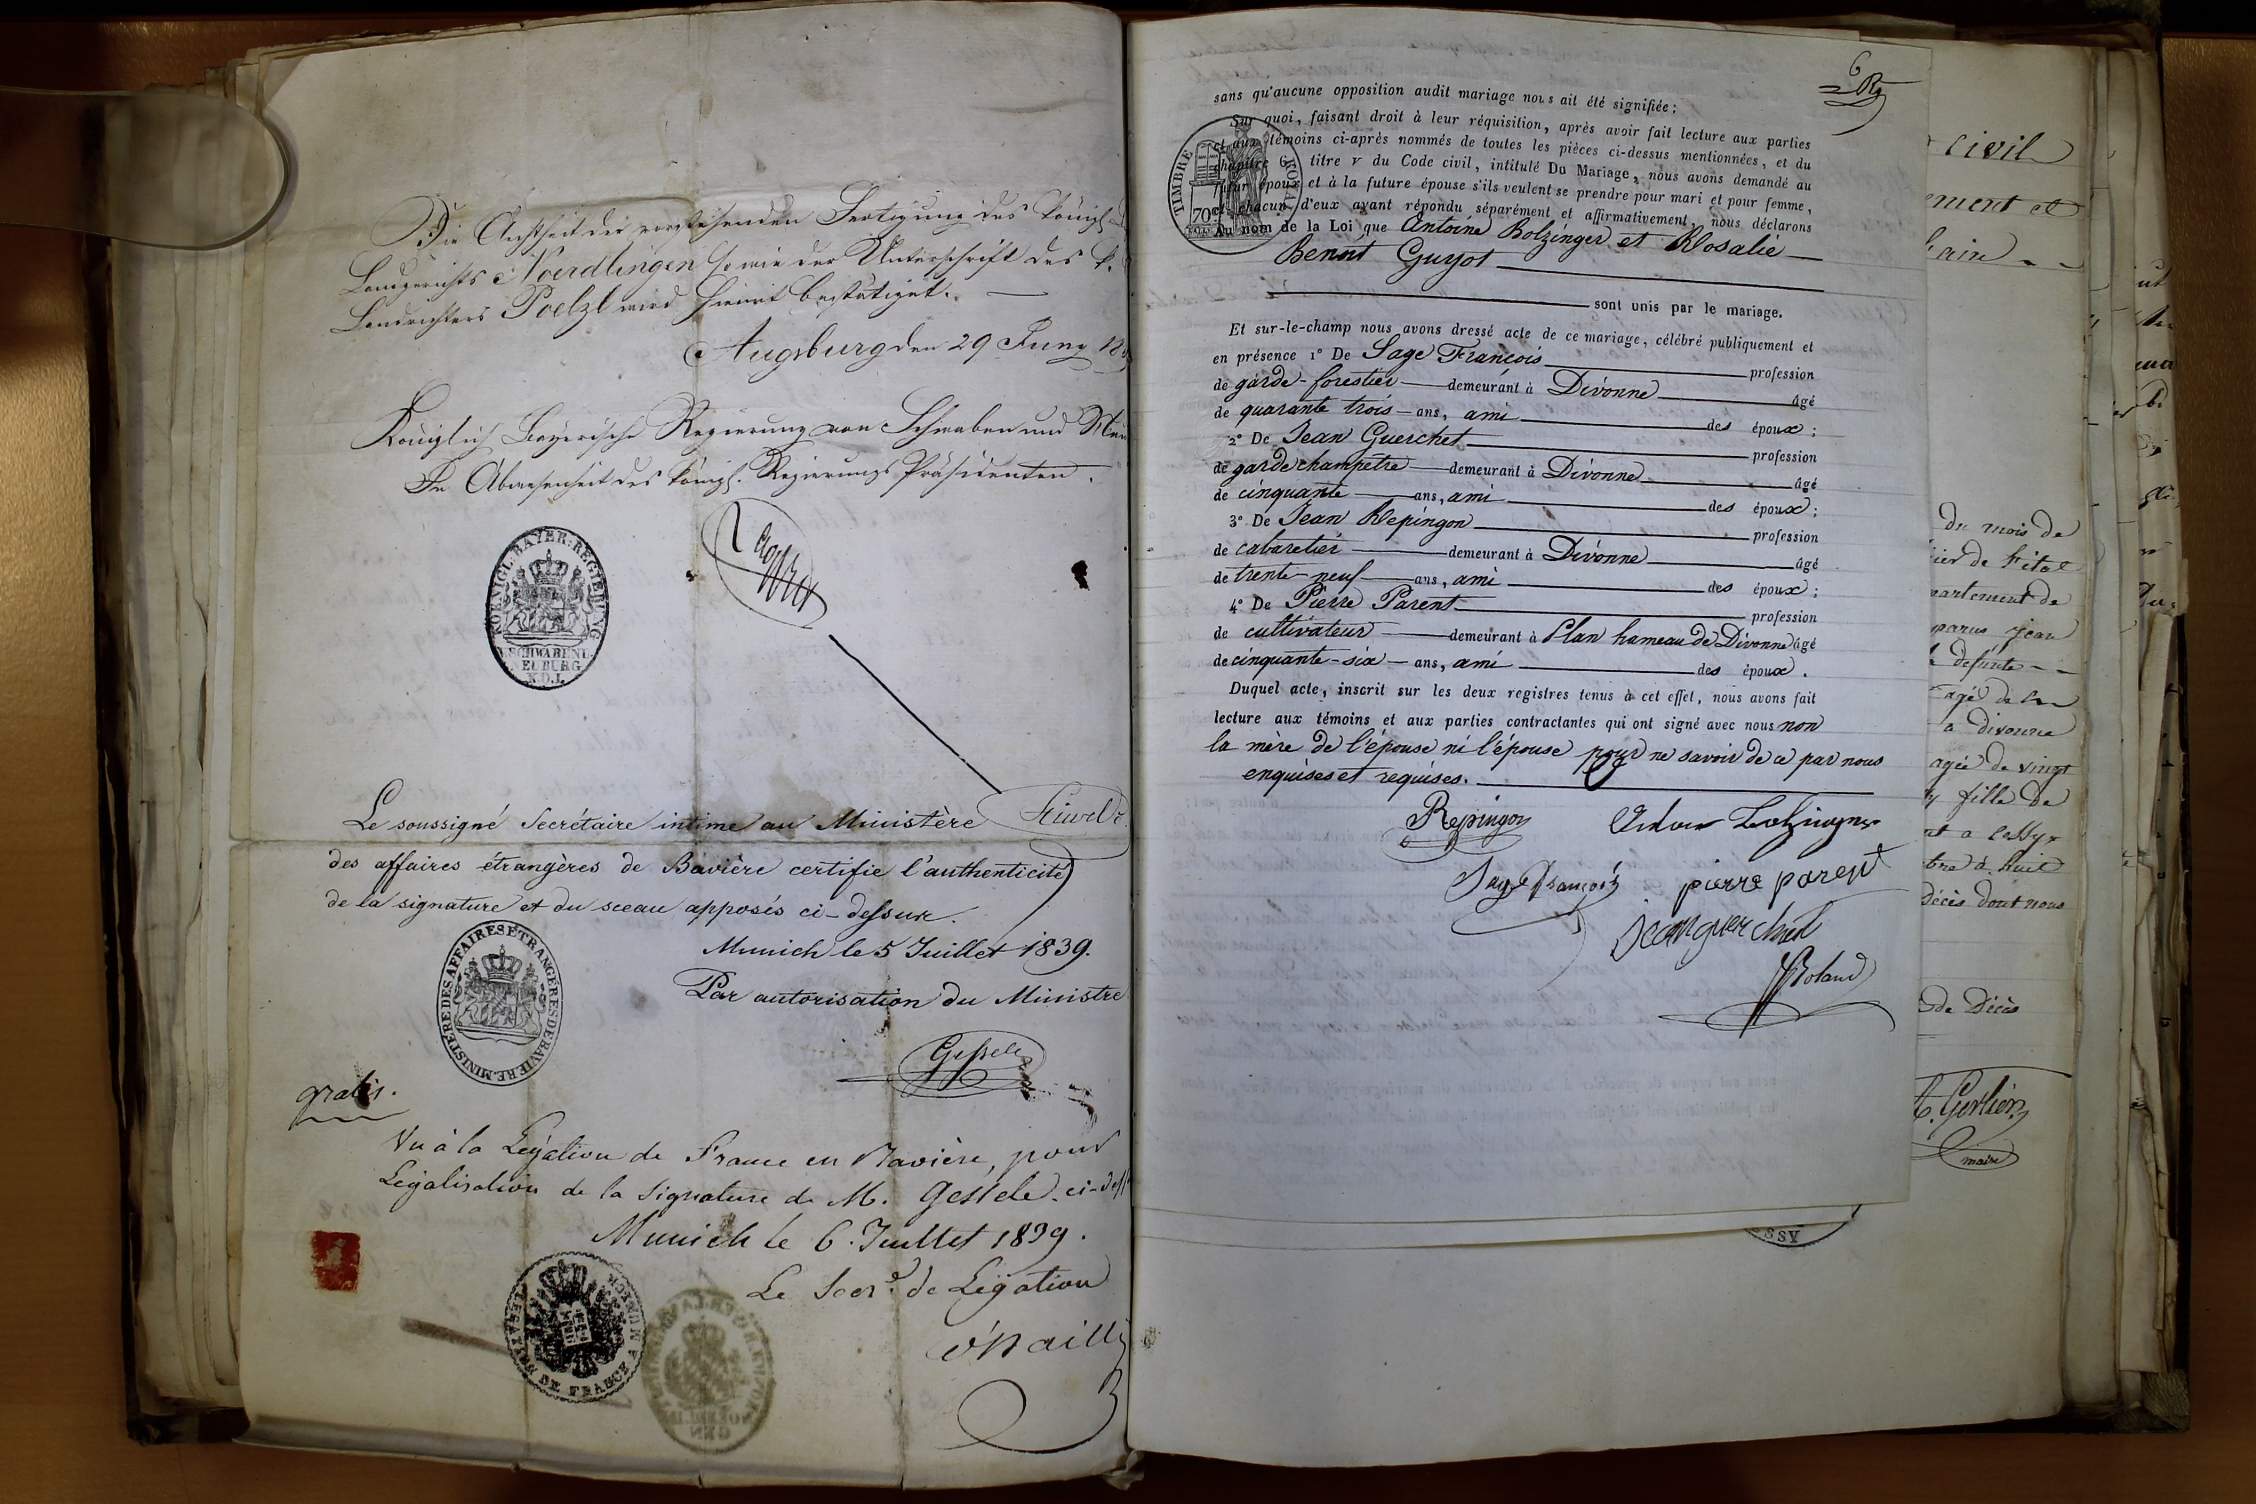 Die Aechtheit der vorstehenden Fertigung des königl.
Landgerichts Noerdlingen sowie der Unterschrift des k.
Landrichters Poelzl wird hiemit bestätiget.
Augsburg den 29 Juny 18
Königlich Bayerische Regierung von Schwaben und Neu
In Abwesenheit des königl. Regierungs Präsidenten.
KOENIGL. BAYER. REGIERUNG
SCHWABEN U.
NEUBURG
K.D.I.
Le soussigné Secrétaire intime au Ministère
des affaires étrangères de Bavière certifie l'authenticité
de la signature et du sceau apposés ci-dessus.
Munich le 5 Juillet 1839.
Par autorisation du Ministre
MINISTERE DES AFFAIRES ETRANGERES DE BAVIERE
Gessele
gratis.
Vu à la Légation de France en Bavière, pour
Légalisation de la signature de M. Gessele ci-dess
Munich le 6 Juillet 1839.
Le Secr.e de Légation
DE FRANCE A MUNICH
6
TIMBRE ROYAL
70
sans qu'aucune opposition audit mariage nous ait été signifiée;
Sur quoi, faisant droit à leur réquisition, après avoir fait lecture aux parties
et aux témoins ci-après nommés de toutes les pièces ci-dessus mentionnées, et du
chapitre 6, titre v du Code civil, intitulé Du Mariage, nous avons demandé au
futur époux et à la future épouse s'ils veulent se prendre pour mari et pour femme,
et chacun d'eux ayant répondu séparément et affirmativement, nous déclarons
Au nom de la Loi que Antoine Bolzinger et Rosalie
Benoit Guyot
sont unis par le mariage.
Et sur-le-champ nous avons dressé acte de ce mariage, célébré publiquement et
en présence 1° De Sage François profession
de garde-forestier demeurant à Divonne âgé
de quarante trois ans, ami des époux;
2° De Jean Guerchet profession
de garde champêtre demeurant à Divonne âgé
de cinquante ans, ami des époux;
3° De Jean Repingon profession
de cabaretier demeurant à Divonne âgé
de trente-neuf ans, ami des époux;
4° De Pierre Parent profession
de cultivateur demeurant à Plan hameau de Divonne âgé
de cinquante-six ans, ami des époux.
Duquel acte, inscrit sur les deux registres tenus à cet effet, nous avons fait
lecture aux témoins et aux parties contractantes qui ont signé avec nous non
la mère de l'épouse ni l'épouse pour ne savoir de ce par nous
enquises et requises.
Repingon
Sage François pierre parent
Jean guerchet
Roland
civil
ement et
du mois de
partement de
parus jean
défunte
agé de
a divonne
agée de vingt
fille de
décès dont nous
de Décès
maire